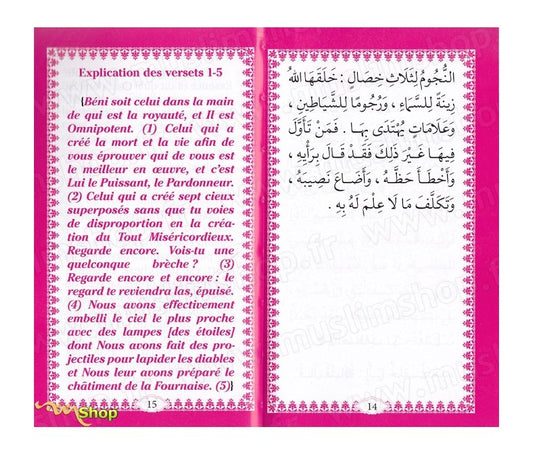 Explication des versets 1-5
{Béni soit celui dans la main
de qui est la royauté, et Il est
Omnipotent. (1) Celui qui a
créé la mort et la vie afin de
vous éprouver qui de vous est
le meilleur en œuvre, et c'est
Lui le Puissant, le Pardonneur.
(2) Celui qui a créé sept cieux
superposés sans que tu voies
de disproportion en la créa-
tion du Tout Miséricordieux.
Regarde encore. Vois-tu une
quelconque brèche ? (3)
Regarde encore et encore : le
regard te reviendra las, épuisé.
(4) Nous avons effectivement
embelli le ciel le plus proche
avec des lampes [des étoiles]
dont Nous avons fait des pro-
jectiles pour lapider les diables
et Nous leur avons préparé le
châtiment de la Fournaise. (5)}
15
النُّجُومُ لِثَلَاثِ خِصَالٍ : خَلَقَهَا اللهُ
زِينَةً لِلسَّمَاءِ ، وَرُجُومًا لِلشَّيَاطِينِ ،
وَعَلَامَاتٍ يُهْتَدَى بِهَا . فَمَنْ تَأَوَّلَ
فِيهَا غَيْرَ ذَلِكَ فَقَدْ قَالَ بِرَأْيِهِ ،
وَأَخْطَأَ حَظَّهُ ، وَأَضَاعَ نَصِيبَهُ ،
وَتَكَلَّفَ مَا لَا عِلْمَ لَهُ بِهِ .
14
Shop
www.muslimshop.fr